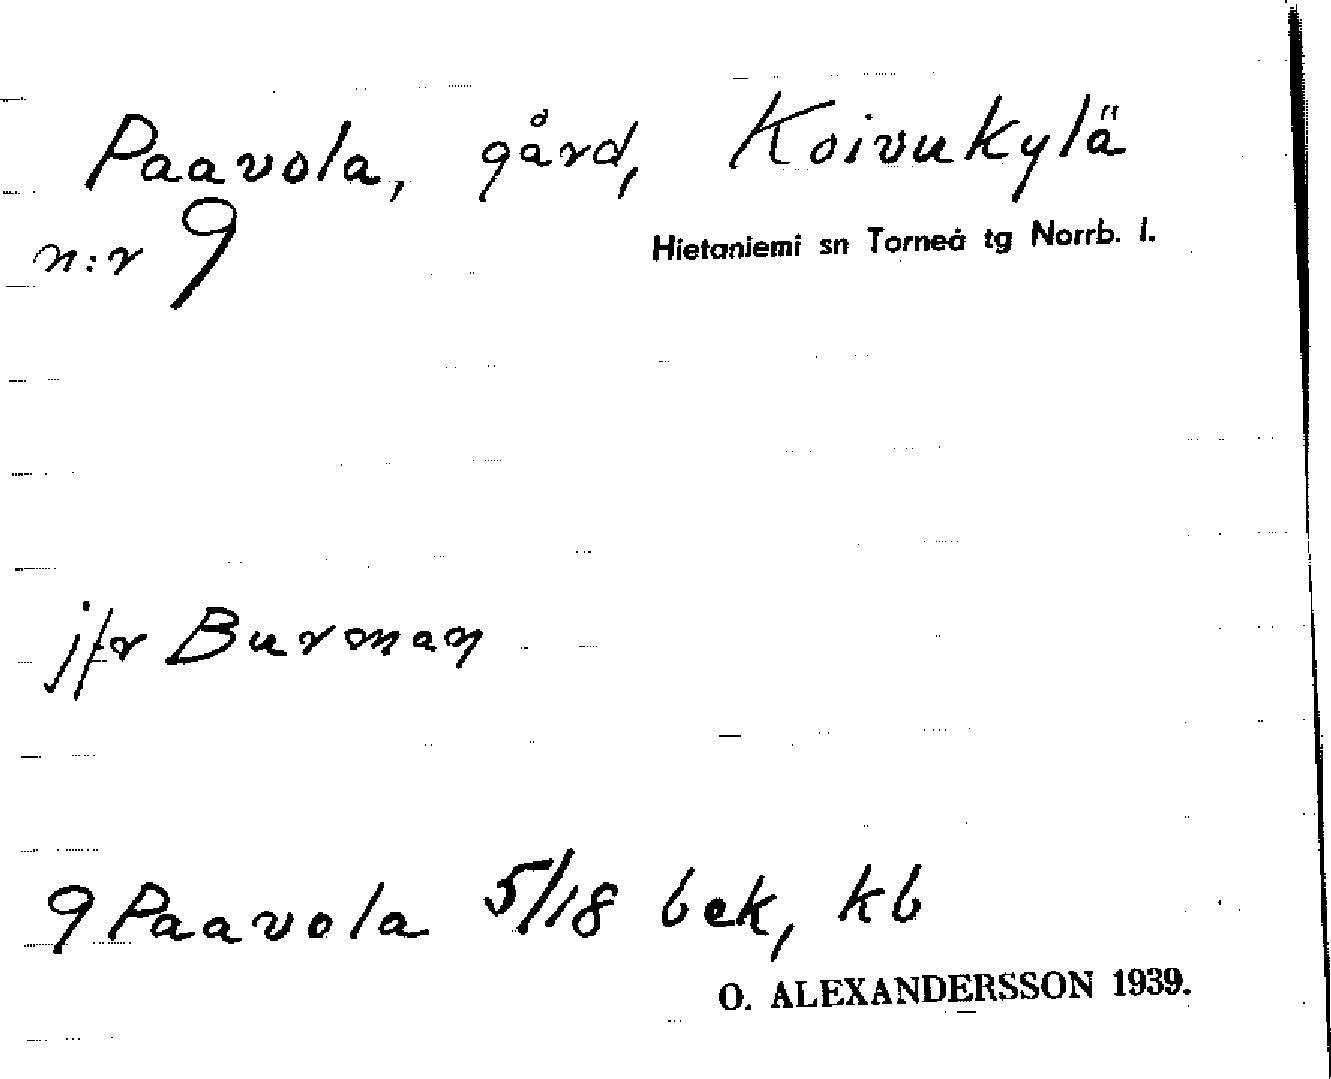 Paavola, gård, Koivukylä
n:r 9
Hietaniemi sn Torneå tg Norrb. l.
jfr Burman
9 Paavola 5/18 bek, kb
O. ALEXANDERSSON 1939.